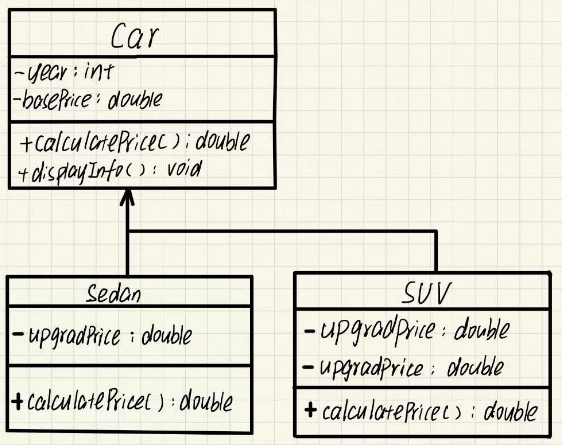 Car
-year : int
-basePrice : double
+calculatePrice() ; double
+displayInfo() : void
Sedan
- upgradPrice : double
+calculatePrice() : double
SUV
- upgradPrice : double
- upgradPrice : double
+ calculatePrice() : double